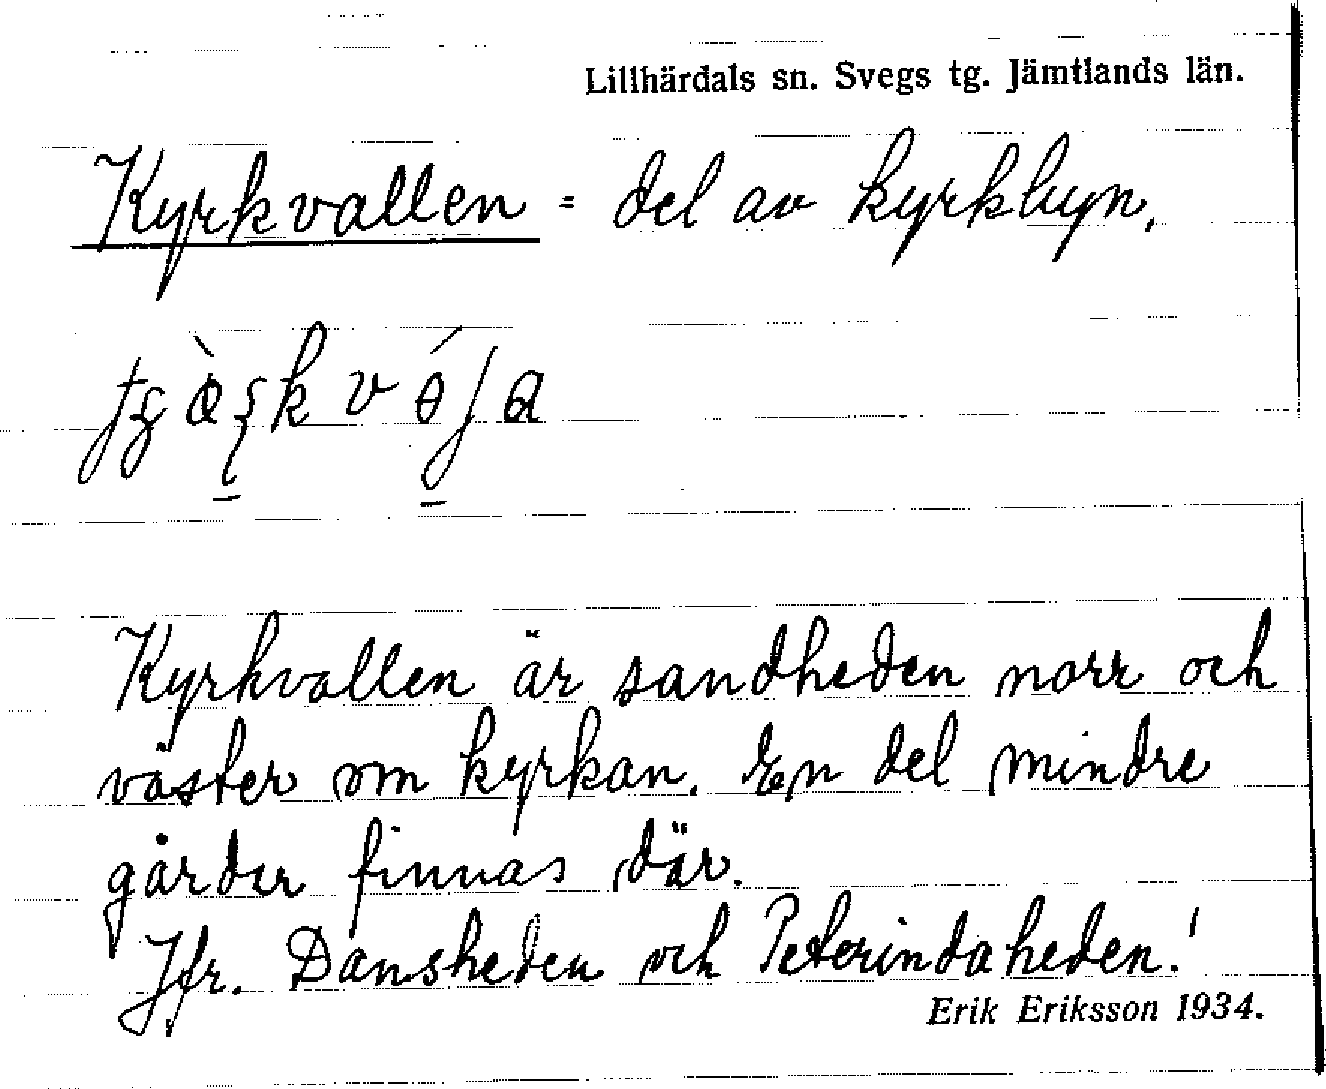 Lillhärdals sn. Svegs tg. Jämtlands län.
Kyrkvallen = del av kyrkbyn.
Kyrkvallen är sandheden norr och
väster om kyrkan. En del mindre
gårder finnas där.
Jfr. Dansheden och Peterindaheden!
Erik Eriksson 1934.